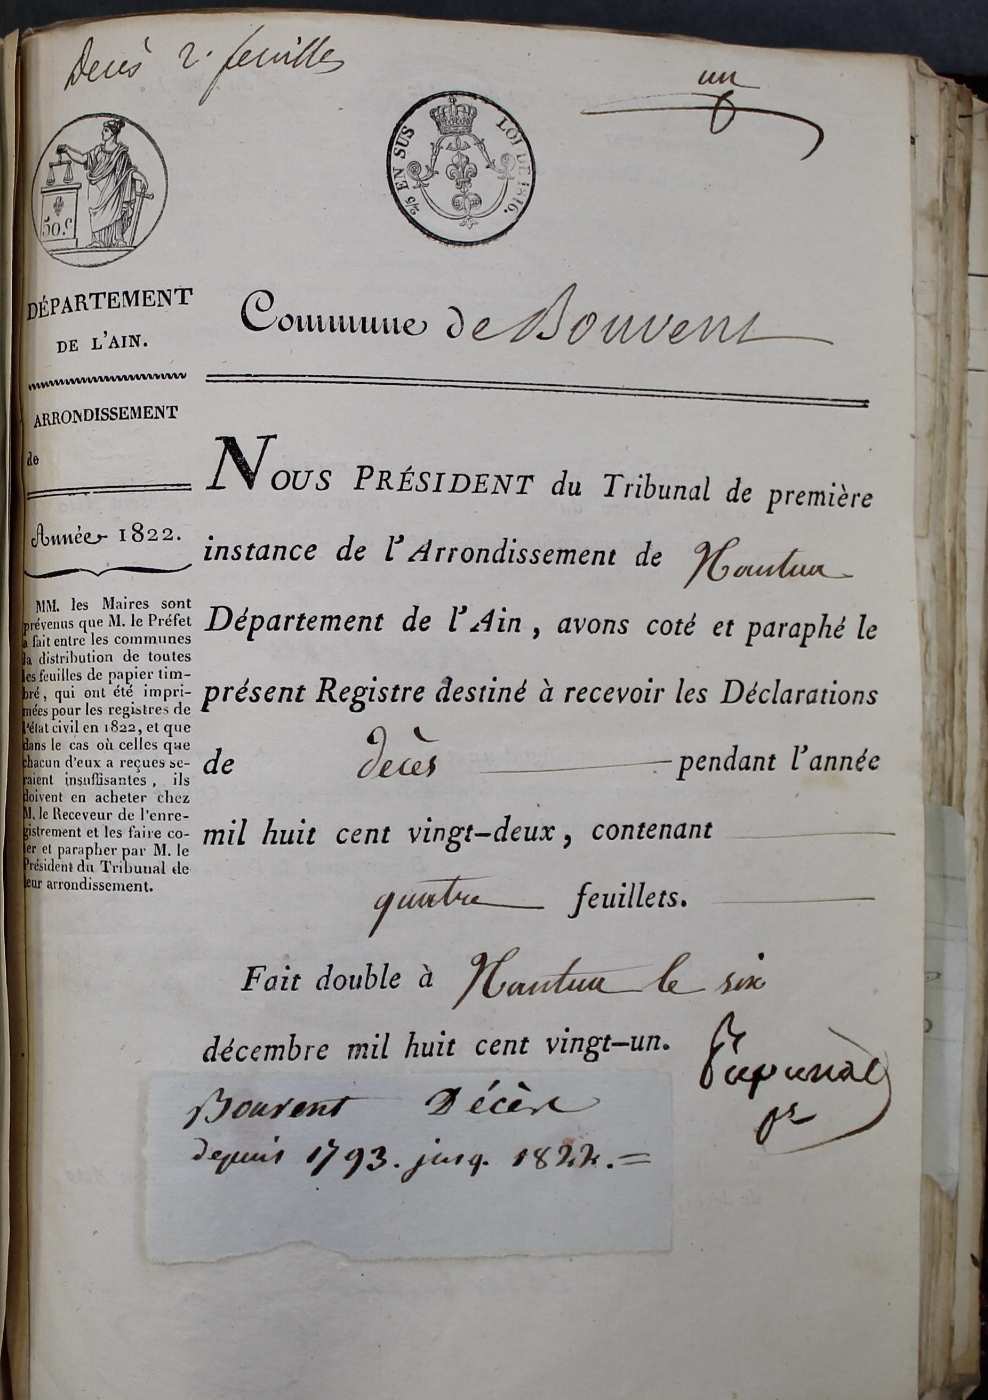 Décès 2. feuilles
un
2/5 EN SUS LOI DE 1816.
50.c
DÉPARTEMENT
DE L'AIN.
Commune de Bouvent
ARRONDISSEMENT
de
Année 1822.
MM. les Maires sont
prévenus que M. le Préfet
a fait entre les communes
la distribution de toutes
les feuilles de papier tim-
bré, qui ont été impri-
mées pour les registres de
l'état civil en 1822, et que
dans le cas où celles que
chacun d'eux a reçues se-
raient insuffisantes, ils
doivent en acheter chez
M. le Receveur de l'enre-
gistrement et les faire co-
ter et parapher par M. le
Président du Tribunal de
leur arrondissement.
NOUS PRÉSIDENT du Tribunal de première
instance de l'Arrondissement de Nantua
Département de l'Ain, avons coté et paraphé le
présent Registre destiné à recevoir les Déclarations
de décès pendant l'année
mil huit cent vingt-deux, contenant
quatre feuillets.
Fait double à Nantua le six
décembre mil huit cent vingt-un.
Bouvent Décès
depuis 1793. jusq. 1822. =